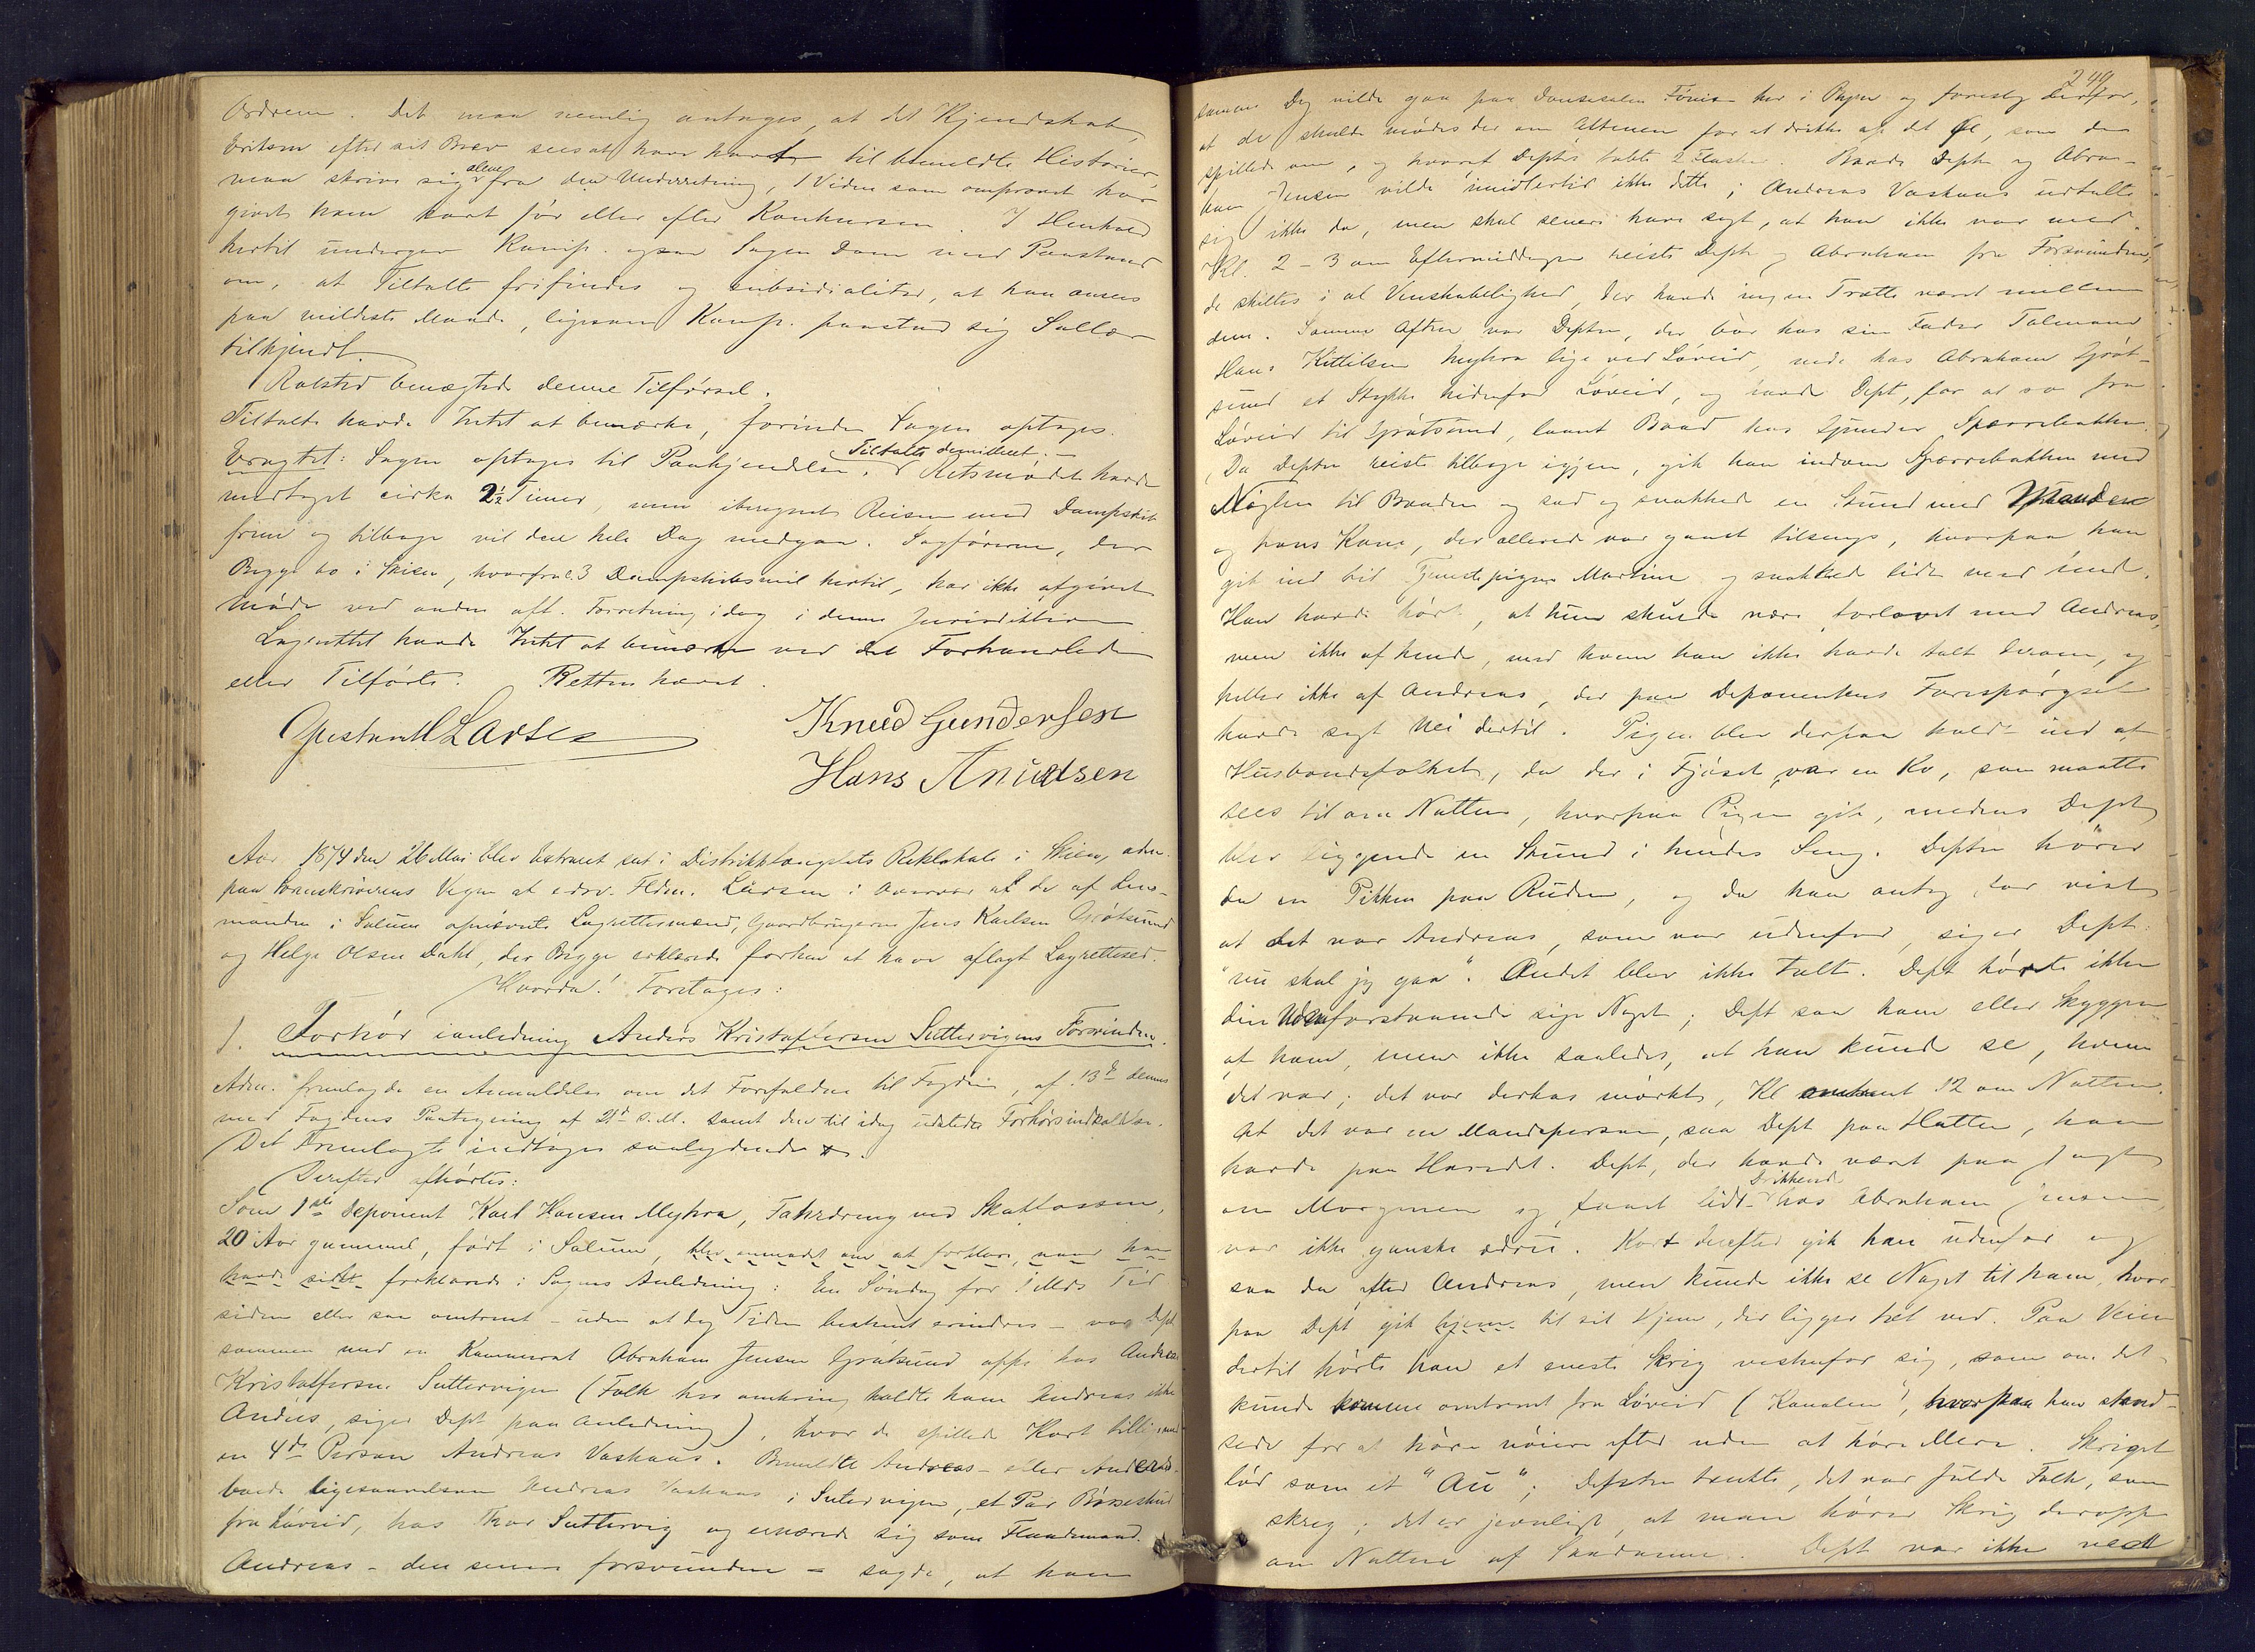 Ordren. Det maa nemlig antages, at det Kjendskab,
Eriksen efter sit Brev sees at have havt til bemeldte Historier,
maa skrive sig alene fra den Underretning, 1 Vidne som ompravet har
givet ham kort før eller efter Konkursen. I Henhold
hertil undergav Komp. ogsaa Sagen Dom med Paastand
om, at Tiltalte frifindes og subsidialiter, at han ansees
paa mildeste Maade, ligesom Komp. paastod sig Sallær
tilkjendt.
Rolsted benægtede denne Tilførsel.
Tiltalte havde Intet at bemærke, forinden Sagen optages.
Eragtet: Sagen optages til Paakjendelse. Tiltalte demitteret. Retsmødet havde
medtaget cirka 2½ Timer, men iberegnet Reisen med Dampskib
frem og tilbage vil den hele Dag medgaa. Sagførerne, der
Begge bo i Skien, hvorfra c. 3 Dampskibsmil hertil, har ikke afgivet
Møde ved anden off. Forretning idag i denne Jurisdiktion
Lagrettet havde Intet at bemærke ved det Forhandlede
eller Tilførte. Retten hævet.
Larsen Knud Gundersen
Hans Knudsen
Aar 1874 den 26 Mai blev Extraret sat i Distriktsfængslets Retslokale i Skien, adm.
paa Sorenskriverens Vegne af edsv. Fldm. Larsen i Overvær af de af Lens-
manden i Solum opnævnte Lagrettesmænd, Gaardbrugerne Jens Karlsen Gråtsund
og Helge Olsen Dahl, der Begge erklærede forhen at have aflagt Lagretteed.
Hvorda! Foretages:
1. Forhør i anledning Anders Kristoffersen Suttervigens Forsvinden.
Adm. fremlagde en Anmeldelse om det Forefaldne til Fogden, af 13de dennes
med Fogdens Paategning af 21de s. M. samt den til idag udstedte Forhørsindkaldelse.
Det Fremlagte indtages saalydende
Derefter afhørtes:
Som 1ste Deponent Karl Hansen Myhra, Faterdreng ved Skotfossen,
20 Aar gammel, født i Solum, blev anmodet om at forklare, naar han
havde sidst forklarede i Sagens Anledning: En Søndag for 1 Mds Tid
siden eller saa omtrent - uden at dog Tiden bestemt erindres - var Dept
sammen med en Kammerat Abraham Jensen Gråtsund oppe hos Andreas
Kristoffersen Suttervigen (Folk her omkring kaldte ham Andreas ikke
Anders, siger Dept paa Anledning), hvor de spillede Kort tilligemed
en 4de Person Andreas Vashaus. Bemeldte Andreas - eller Anders -
boede ligesaavelsom Andreas Vashaus i Sutervigen, et Par Bøsseskud
fra Løveid, hos Thor Suttervig og ernærede sig som Flaademand.
Andreas - den senere forsvundne - sagde, at han
249
samme Dag vilde gaa paa Dansesalen Fønix her i Byen og foreslog derfor,
at de skulde mødes der om Aftenen for at drikke op det Øl, som de
spillede om, og hvoraf Deptn tabte 2 Flasker. Baade Deptn og Abra-
ham Jensen vilde imidlertid ikke dette; Andreas Vashaus udtalte
sig ikke da, men skal senere have sagt, at han ikke var med.
Kl. 2 - 3 om Eftermiddagen reiste Deptn og Abraham fra Forsvundne,
de skiltes i al Venskabelighed, der havde ingen Trætte været mellem
dem. Samme Aften var Deptn, der bor hos sin Fader Tolmand
Hans Kittilsen Myhra lige ved Løveid, nede hos Abraham Gråt-
sund et Stykke nedenfor Løveid, og havde Dept, for at ro fra
Løveid til Gråtsund, laant Baad hos Gunder Sperrebakken.
Da Deptn reiste tilbage igjen, gik han indom Sperrebakken med
Nøglen til Baaden og sad og snakkede en Stund med Manden
og hans Kone, der allerede var gaaet tilsengs, hvorpaa han
gik ind til Tjenestepigen Martine og snakkede lidt med hende.
Han havde hørt, at hun skulde være forlovet med Andreas,
men ikke af hende, med hvem han ikke havde talt derom, og
heller ikke af Andreas, der paa Deponentens Forespørgsel
havde sagt Nei dertil. Pigen blev derpaa kaldt ind af
Husbondsfolkets, da der i Fjøset var en Ko, som maatte
sees til om Natten, hvorpaa Pigen gik, medens Dept
blev liggende en Stund i hendes Seng. Deptn hører
da en Pikken paa Ruden, og da han antog for vist,
at det var Andreas, som var udenfor, siger Dept:
"nu skal jeg gaa". Andet blev ikke talt. Dept hørte ikke
den Udenforstaaende sige Noget; Dept saa ham eller Skyggen
af ham, men ikke saaledes, at han kunde se, hvem
det var; det var derhos mørkt, Kl omtrent 12 om Natten.
At det var en Mandsperson, saa Dept paa Hatten, han
havde paa Hovedet. Dept, der havde været paa Jagt
om Morgenen og faaet lidt Drikkende hos Abraham Jensen,
var ikke ganske ædru. Kort derefter gik han udenfor og
saa da efter Andreas, men kunde ikke se Noget til ham, hvor-
paa Dept gik hjem til sit Hjem, der ligger tæt ved. Paa Veien
dertil hørte han et eneste Skrig vestenfor sig, som om det
kunde komme omtrent fra Løveid (Kanalen), hvorpaa han stand-
sede for at høre nøiere efter uden at høre Mere. Skriget
lød som et "Au"; Deptn tænkte, det var fulde Folk, som
skreg; det er jevnligt, at man hører Skrig deroppe
om Natten af Saadanne. Dept var ikke ræd